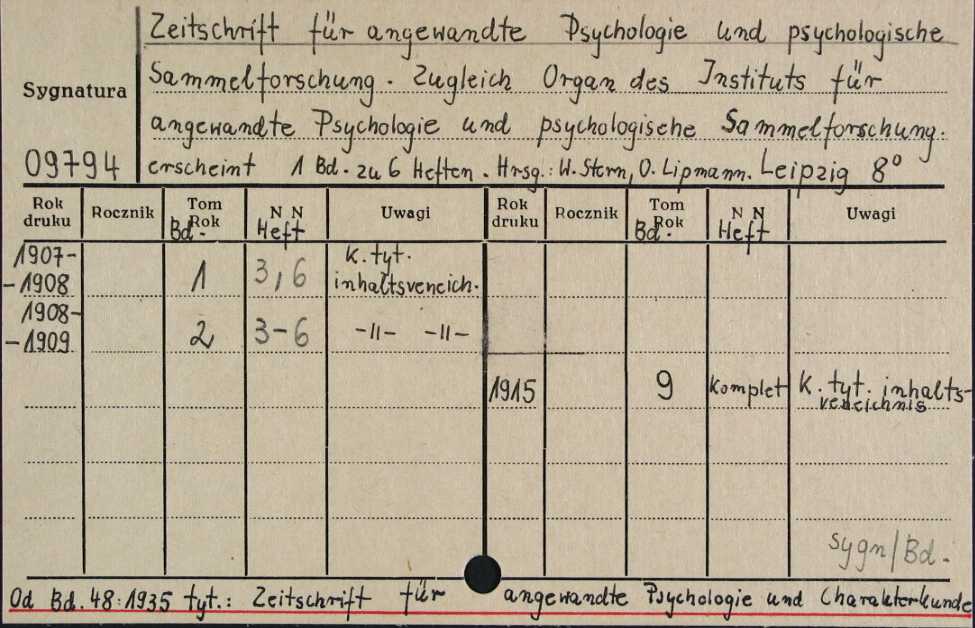 Zeitschrift für angewandte Psychologie und psychologische
Sammelforschung. Zugleich Organ des Instituts für
Sygnatura
angewandte Psychologie und psychologische Sammelforschung.
09794 erscheint 1 Bd. zu 6 Heften. Hrsg.: W. Stern, O. Lipmann. Leipzig 8°
Rok druku Rocznik Tom Rok Bd. N N Heft Uwagi Rok druku Rocznik Tom Rok Bd. N N Heft Uwagi
1907-
-1908 1 3, 6 K. tyt.
inhaltsveneich.
1908-
-1909 2 3-6 -||- -||-
1915 9 komplet K. tyt. inhalts-
veneichnis
sygn/Bd.
Od Bd. 48:1935 tyt.: Zeitschrift für angewandte Psychologie und Charakterkunde